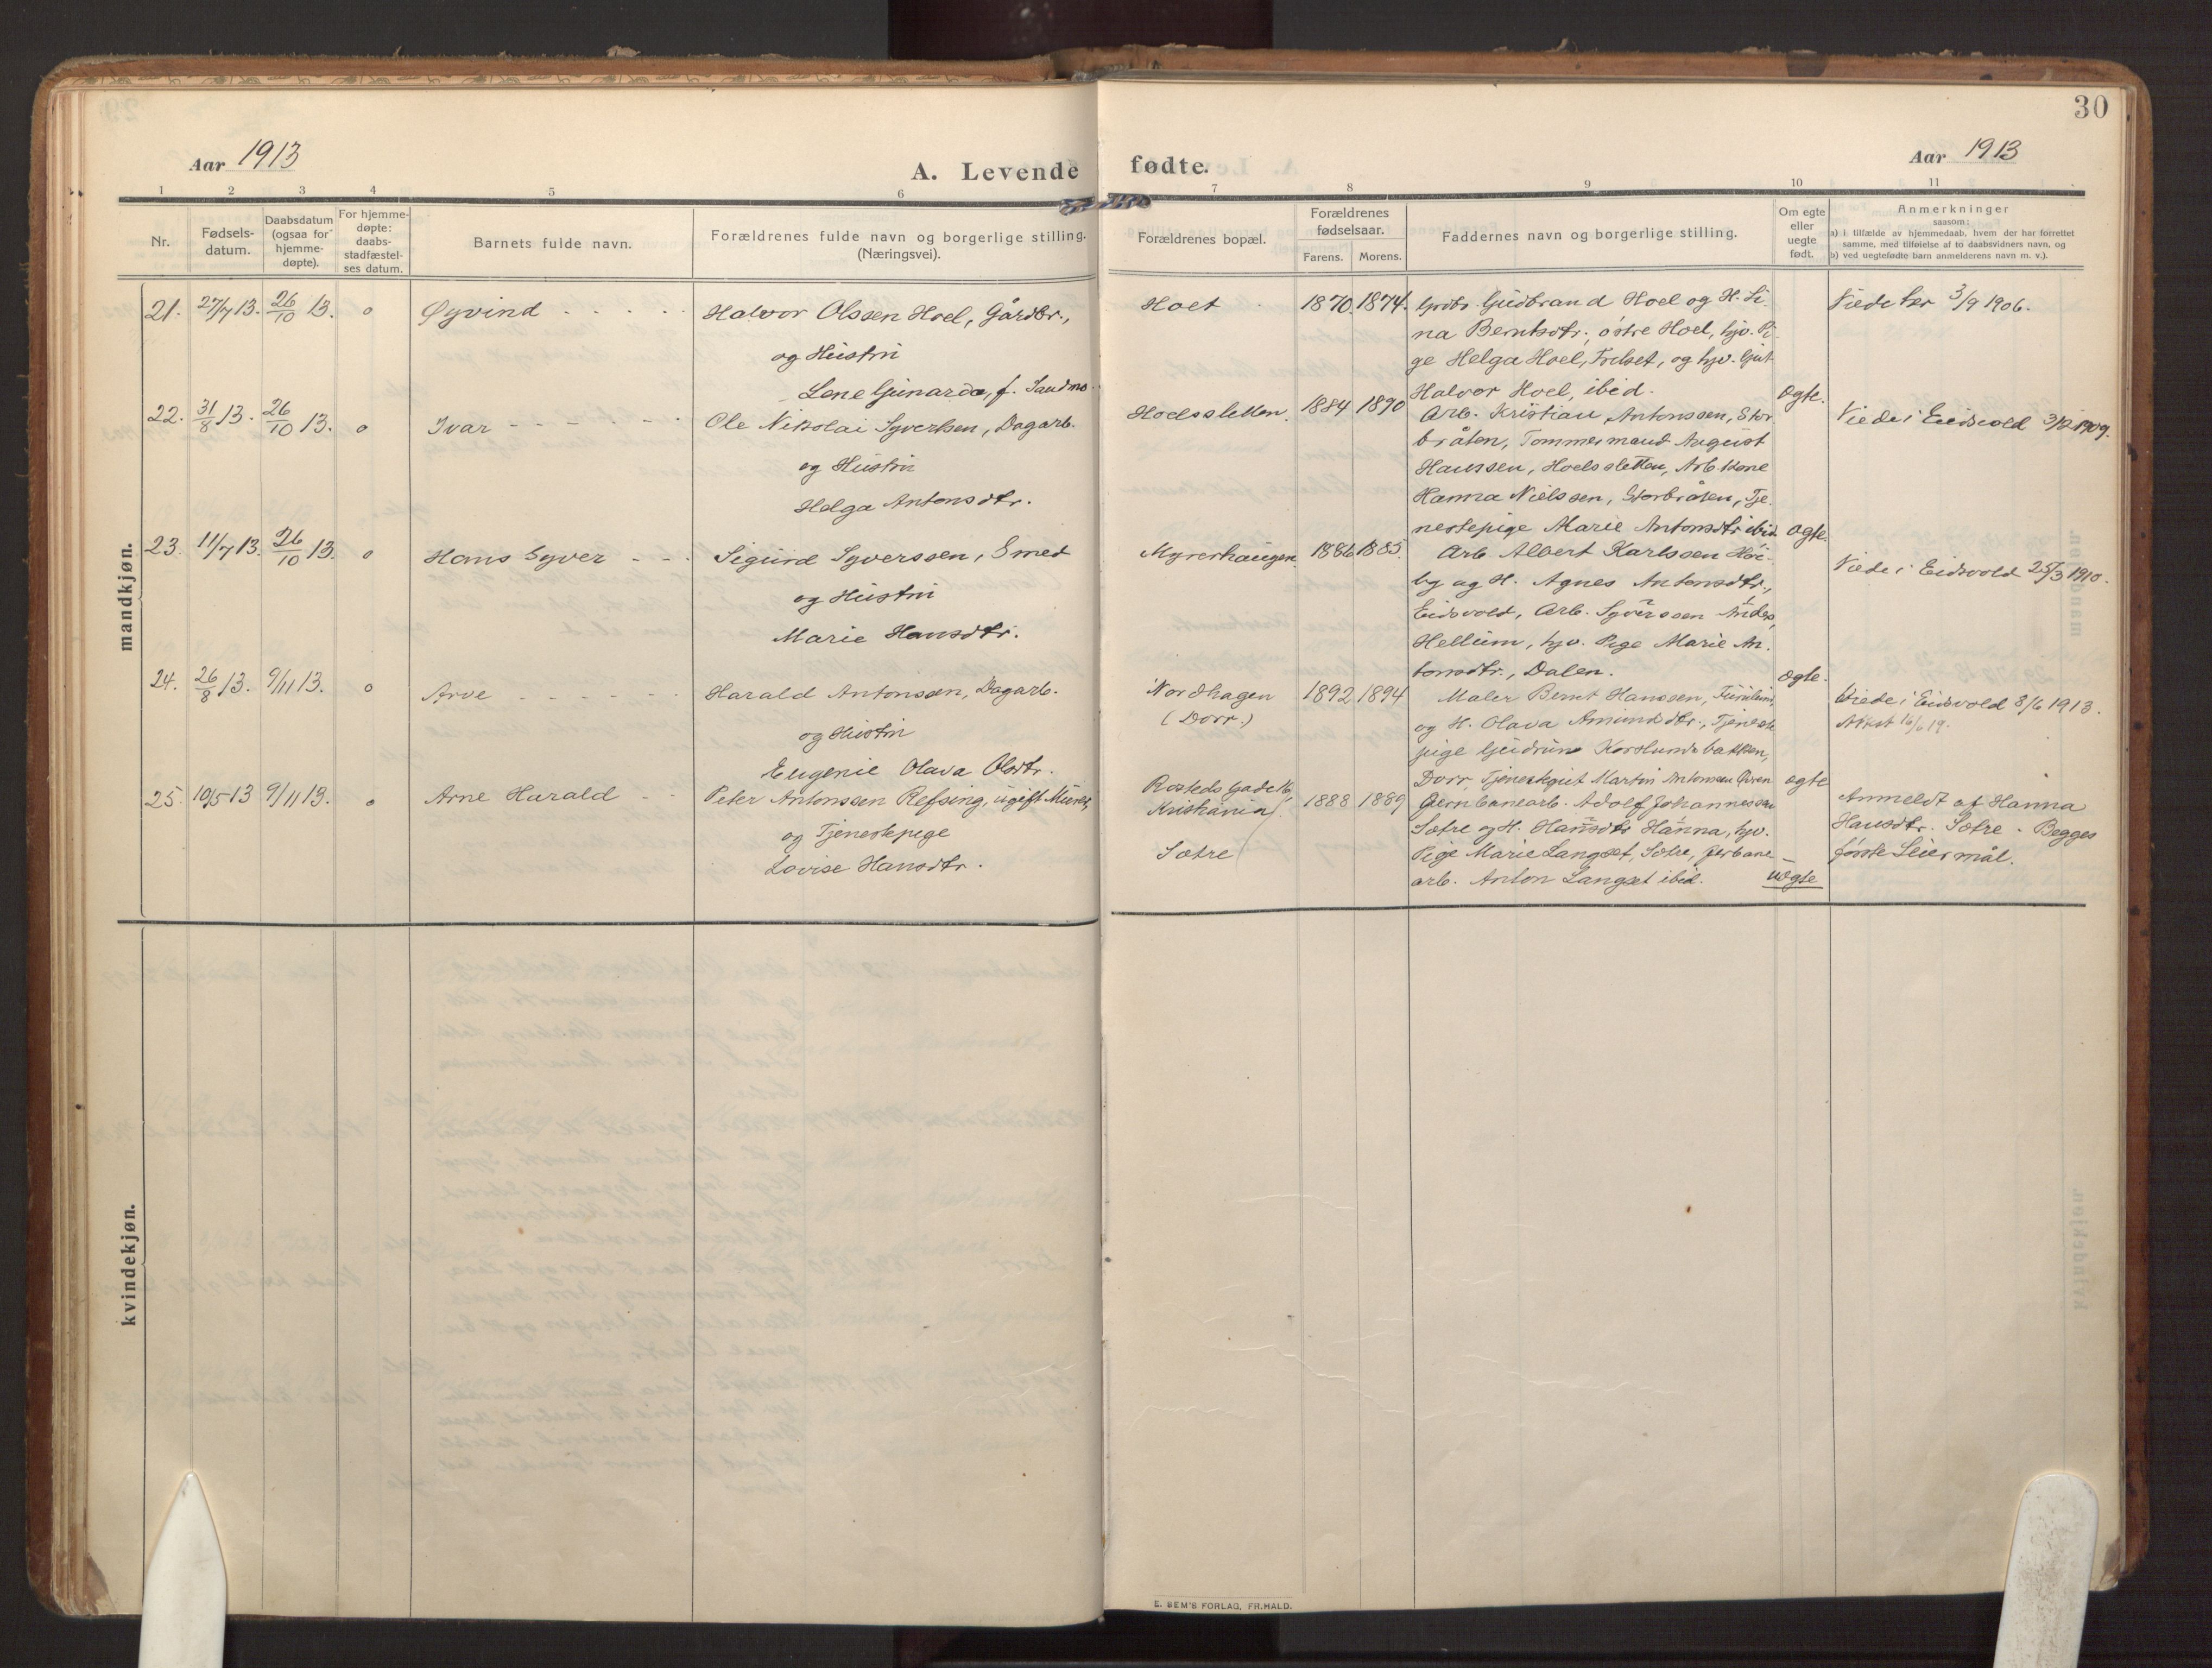 30
Aar 1913
A. Levende
fødte.
Aar 1913
1 2 3 4 5 6
7 8 9 10 11
Nr.
Fødsels-
datum.
Daabsdatum
(ogsaa for
hjemme-
døpte).
For hjemme-
døpte:
daabs-
stadfæstel-
ses datum.
Barnets fulde navn.
Forældrenes fulde navn og borgerlige stilling.
(Næringsvei).
Forældrenes bopæl.
Forældrenes
fødselsaar.
Farens. Morens.
Faddernes navn og borgerlige stilling.
Om egte
eller
uegte
født.
Anmerkninger
saasom:
a) i tilfælde av hjemmedaab, hvem der har forrettet
samme, med tilføielse af to daabsvidners navn, og
b) ved uegtefødte barn anmelderens navn m. v.).
mandkjøn.
21. 27/7 13. 26/10 13. o Øyvind
Halvor Olssen Hoel, Gårdbr.,
og Hustru
Lene Gunarda, f. Sandmo.
Hoel 1870. 1874.
Grdbr. Gudbrand Hoel og H. Li-
na Berntsdtr., østre Hoel, hjv. Pi-
ge Helga Hoel, Frilset, og hjv. Gut
Halvor Hoel, ibid.
Ogte.
Viede her 3/9 1906.
22. 31/8 13. 26/10 13. o Ivar
Ole Nikolai Syversen, Dagarb.
og Hustru
Helga Antonsdtr.
Hoelssletten. 1884 1890
Arb. Kristian Antonssen, Stor-
bråten, Tømmermand August
Hanssen, Hoelssletten, Arb. Kone
Hanna Nielssen, Storbråten, Tje-
nestepige Marie Antonsdtr ibid.
Ogte.
Viede i Eidsvold 3/12 1909.
23. 11/7 13. 26/10 13. o Hans Syver
Sigurd Syverssen, Smed
og Hustru
Marie Hansdtr.
Myrerhaugen. 1886 1885.
Arb. Albert Karlssen Høi-
by og H. Agnes Antonsdtr.,
Eidsvold, Arb. Syverssen Anders,
Hellum, hjv. Pige Marie An-
tonsdtr., Dalen.
Ogte.
Viede i Eidsvold 25/3 1910.
24. 26/8 13. 9/11 13. o Arve
Harald Antonssen, Dagarb.
og Hustru
Eugenie Olava Olsdtr.
Nordhagen
(Dorr.)
1892 1894
Maler Bernt Hanssen,
og H. Olava Amundsdtr., Tjeneste
pige Gudrun Korslundsbakken,
Dorr, Tjenestegut Martin Antonsen
ogte
Viede i Eidsvold 8/6 1913.
Attest 16/6 19.
25. 10/5 13 9/11 13. o Arne Harald
Peter Antonssen Refsing, ugift Murer,
og Tjenestepige
Lovise Hansdtr.
Rosteds Gade
Kristiania
Sætre
1888 1889
Jernbanearb. Adolf Johannessen
Sætre og H. Hansdtr Hanna, hjv.
Pige Marie Langset, Sætre, Jerbane-
arb. Anton Langset ibid.
uegte
Anmeldt af Hanna
Hansdtr. Sætre. Begges
første Leiermål.
kvindekjøn.
E. SEM'S FORLAG, FR.HALD.